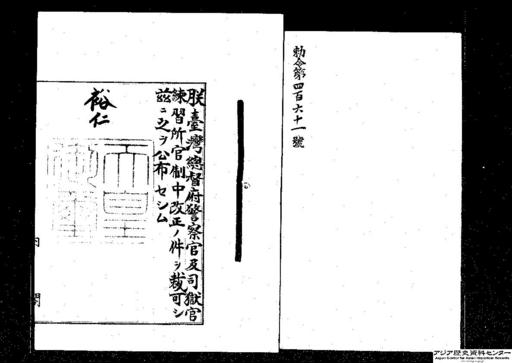 勅令第四百六十一號
朕臺灣總督府警察官及司獄官
練習所官制中改正ノ件ヲ裁可シ
茲ニ之ヲ公布セシム
裕仁
天皇御璽
内閣
アジア歴史資料センター
Japan Center for Asian Historical Records